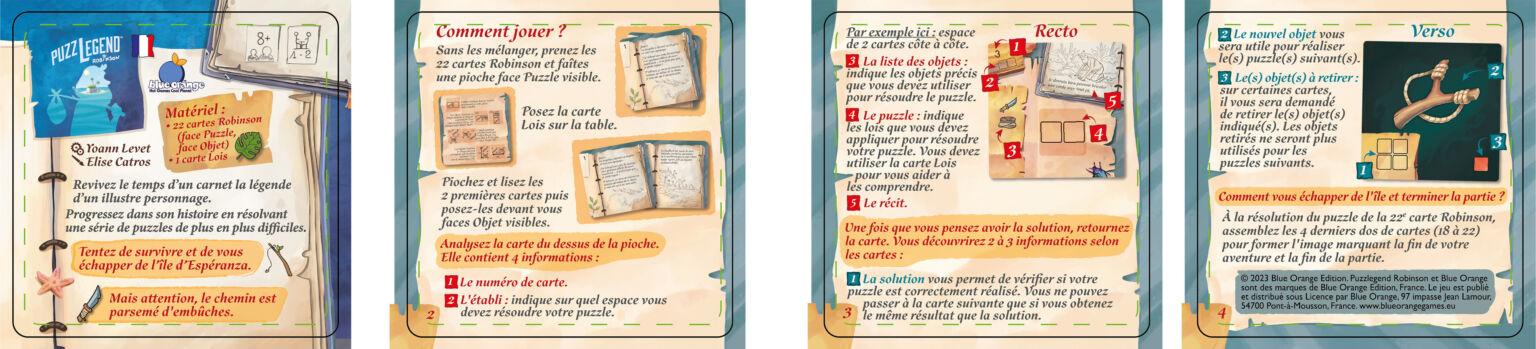 PUZZLEGEND
ROBINSON
blue orange
8+
1 - 2
Matériel :
• 22 cartes Robinson
(face Puzzle,
face Objet)
• 1 carte Lois
Yoann Levet
Elise Catros
Revivez le temps d'un carnet la légende
d'un illustre personnage.
Progressez dans son histoire en résolvant
une série de puzzles de plus en plus difficiles.
Tentez de survivre et de vous
échapper de l'île d'Espéranza.
Mais attention, le chemin est
parsemé d'embûches.
Comment jouer ?
Sans les mélanger, prenez les
22 cartes Robinson et faîtes
une pioche face Puzzle visible.
Posez la carte
Lois sur la table.
Piochez et lisez les
2 premières cartes puis
posez-les devant vous
faces Objet visibles.
Analysez la carte du dessus de la pioche.
Elle contient 4 informations :
1 Le numéro de carte.
2 L'établi : indique sur quel espace vous
devez résoudre votre puzzle.
2
Par exemple ici : espace
de 2 cartes côte à côte.
3 La liste des objets :
indique les objets précis
que vous devez utiliser
pour résoudre le puzzle.
4 Le puzzle : indique
les lois que vous devez
appliquer pour résoudre
votre puzzle. Vous devez
utiliser la carte Lois
pour vous aider à
les comprendre.
5 Le récit.
Recto
1
2
5
4
3
Une fois que vous pensez avoir la solution, retournez
la carte. Vous découvrirez 2 à 3 informations selon
les cartes :
1 La solution vous permet de vérifier si votre
puzzle est correctement réalisé. Vous ne pouvez
passer à la carte suivante que si vous obtenez
le même résultat que la solution.
3
2 Le nouvel objet vous
sera utile pour réaliser
le(s) puzzle(s) suivant(s).
3 Le(s) objet(s) à retirer :
sur certaines cartes,
il vous sera demandé
de retirer le(s) objet(s)
indiqué(s). Les objets
retirés ne seront plus
utilisés pour les
puzzles suivants.
Verso
2
3
1
Comment vous échapper de l'île et terminer la partie ?
À la résolution du puzzle de la 22e carte Robinson,
assemblez les 4 derniers dos de cartes (18 à 22)
pour former l'image marquant la fin de votre
aventure et la fin de la partie.
© 2023 Blue Orange Edition. Puzzlegend Robinson et Blue Orange
sont des marques de Blue Orange Edition, France. Le jeu est publié
et distribué sous Licence par Blue Orange, 97 impasse Jean Lamour,
54700 Pont-à-Mousson, France. www.blueorangegames.eu
4